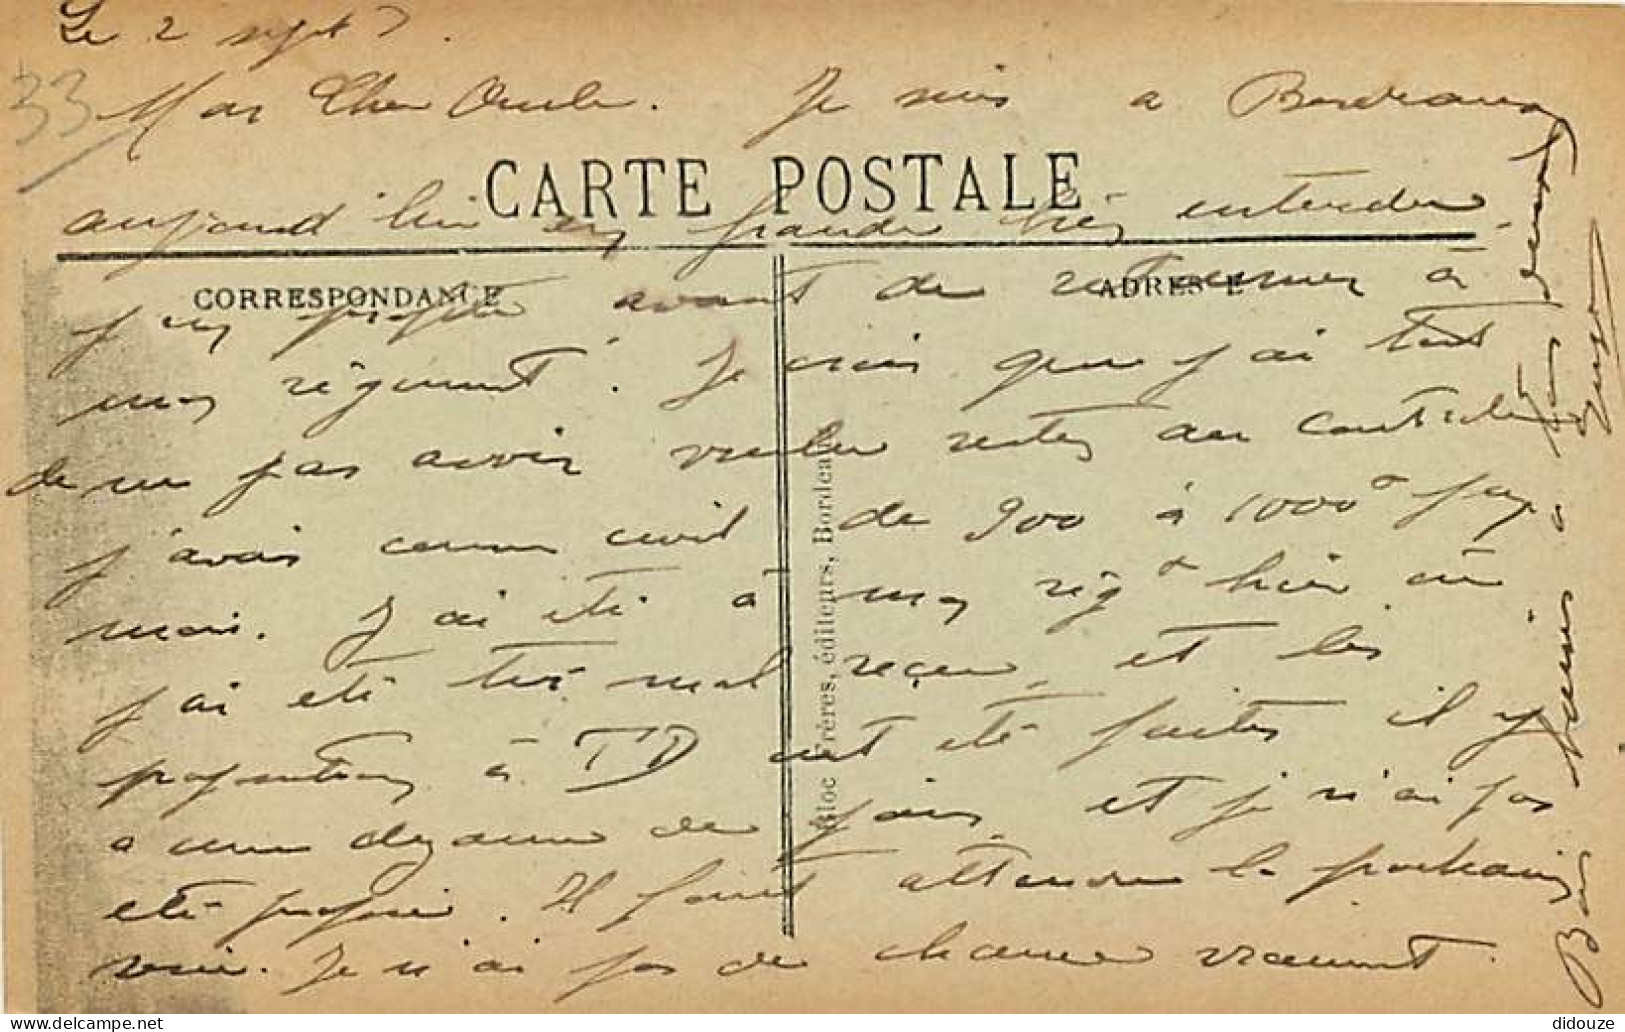 Le 2 sept
33
Mon Cher Oncle. Je suis à Bordeaux
CARTE POSTALE
aujourd'hui en grande
CORRESPONDANCE
ADRESSE
j'en profite avant de retourner à
mon régiment. Je crois que j'ai tort
de ne pas avoir voulu rester au
j'avais comme civil de 900 à 1000
mois. J'ai été à mon régt hier où
j'ai été très mal reçu, et les
propositions à TD ont été faites il y
a une dizaine de jours, et je n'ai pas
été proposé. Il faut attendre le prochain
Je n'ai pas de chance vraiment.
Bons baisers à
Bloc Frères, éditeurs, Bordeaux
didouze